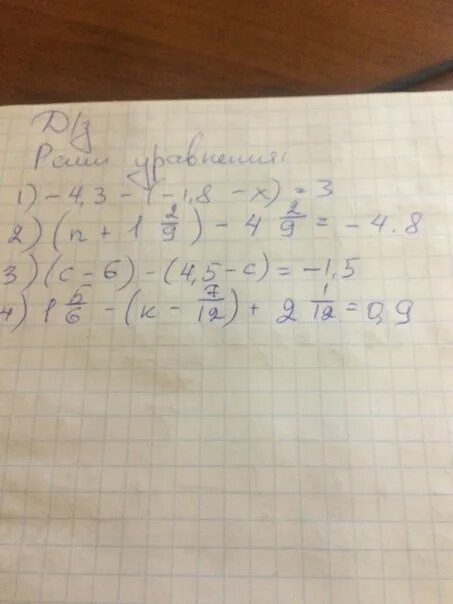 Д/з
Реши уравнения:
1) -4,3 - (-1,8 - x) = 3
2) (n + 1 2/9) - 4 2/9 = -4.8
3) (c - 6) - (4,5 - c) = -1,5
4) 1 5/6 - (к - 7/12) + 2 1/12 = 0,9